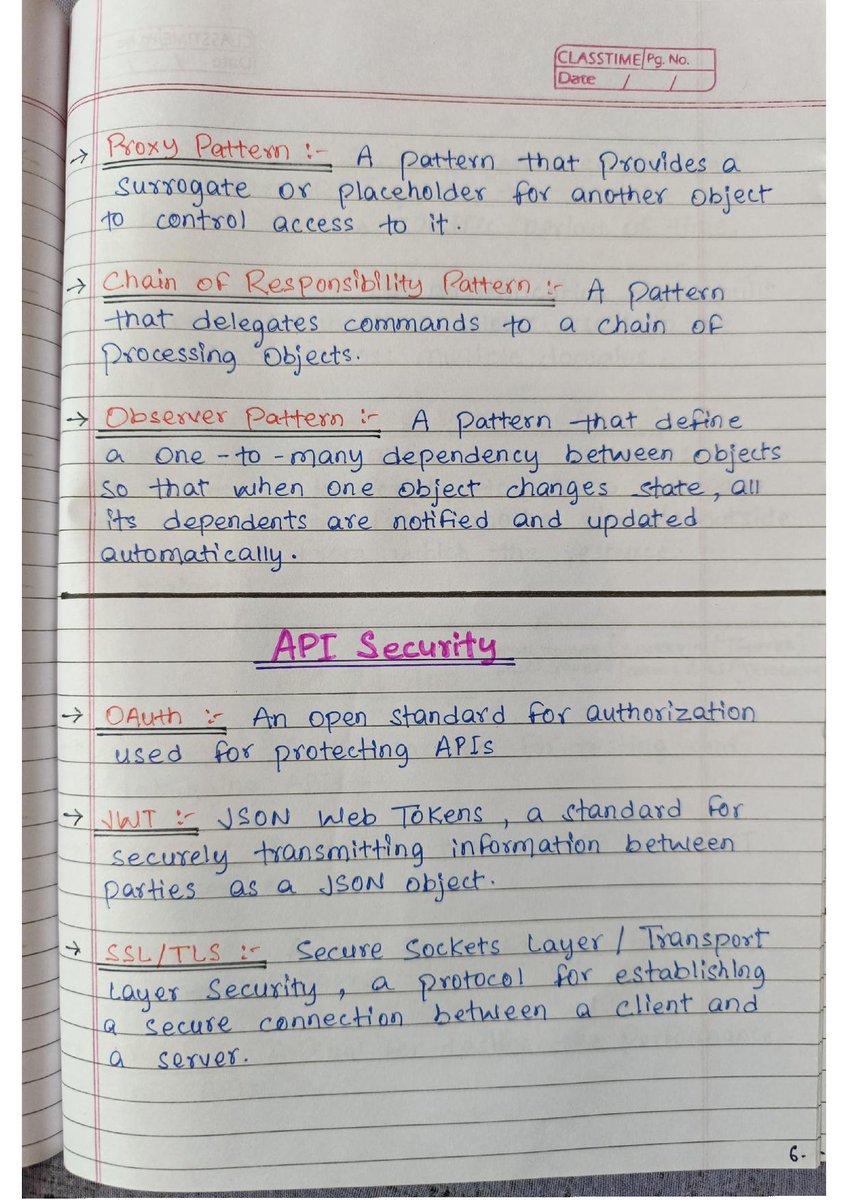 CLASSTIME Pg. No.
Date / /
→ Proxy Pattern :- A pattern that provides a
surrogate or placeholder for another object
to control access to it.
→ Chain of Responsibility Pattern :- A pattern
that delegates commands to a chain of
processing objects.
→ Observer Pattern :- A pattern that define
a one-to-many dependency between objects
so that when one object changes state, all
its dependents are notified and updated
automatically.
API Security
→ OAuth :- An open standard for authorization
used for protecting APIs
→ JWT :- JSON Web Tokens, a standard for
securely transmitting information between
parties as a JSON object.
→ SSL/TLS :- Secure Sockets Layer / Transport
Layer Security, a protocol for establishing
a secure connection between a client and
a server.
6.